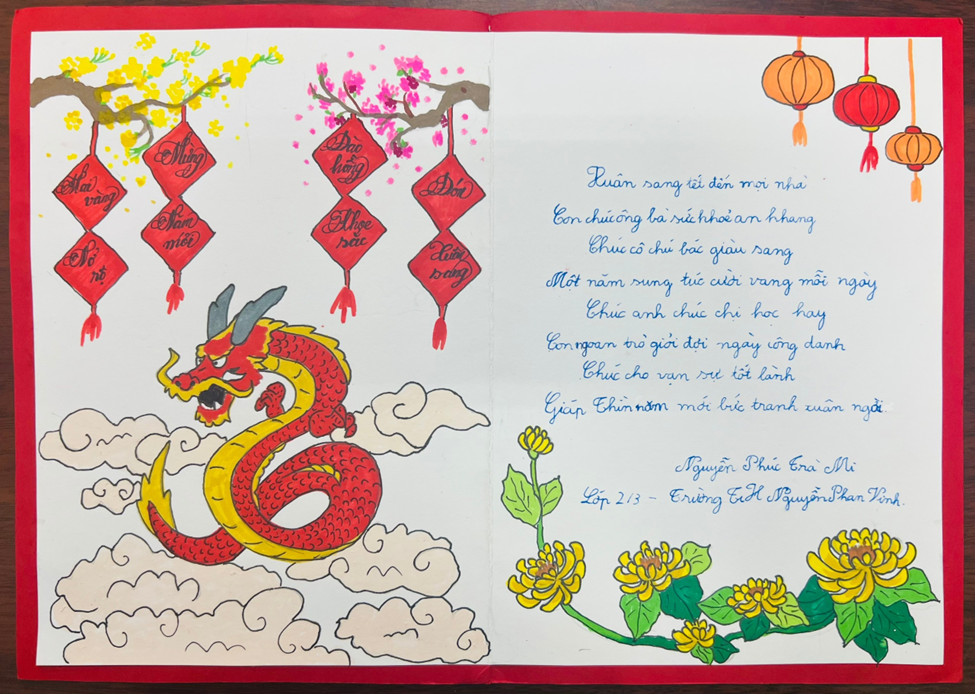 Mai vàng
Nở rộ
Mừng
Năm mới
Đào hồng
Khoe sắc
Đón
Xuân sang
Xuân sang tết đến mọi nhà
Con chúc ông bà sức khỏe an khang
Chúc cô chú bác giàu sang
Một năm sung túc cười vang mỗi ngày
Chúc anh chúc chị học hay
Con ngoan trò giỏi đợi ngày công danh
Chúc cho vạn sự tốt lành
Giáp Thìn năm mới bức tranh xuân ngời.
Nguyễn Phúc Trà Mi
Lớp 2/3 - Trường TiH Nguyễn Phan Vinh.